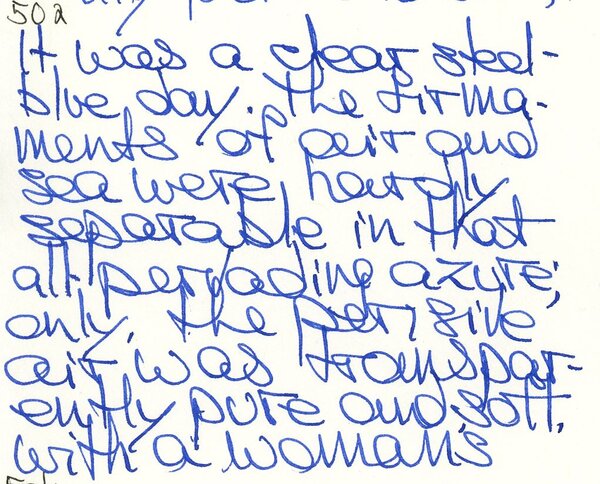 502
It was a clear steel-
blue day. The firma-
ments of air and
sea were hardly
separable in that
all-pervading azure;
only, the pensive
air was transpar-
ently pure and soft,
with a woman's